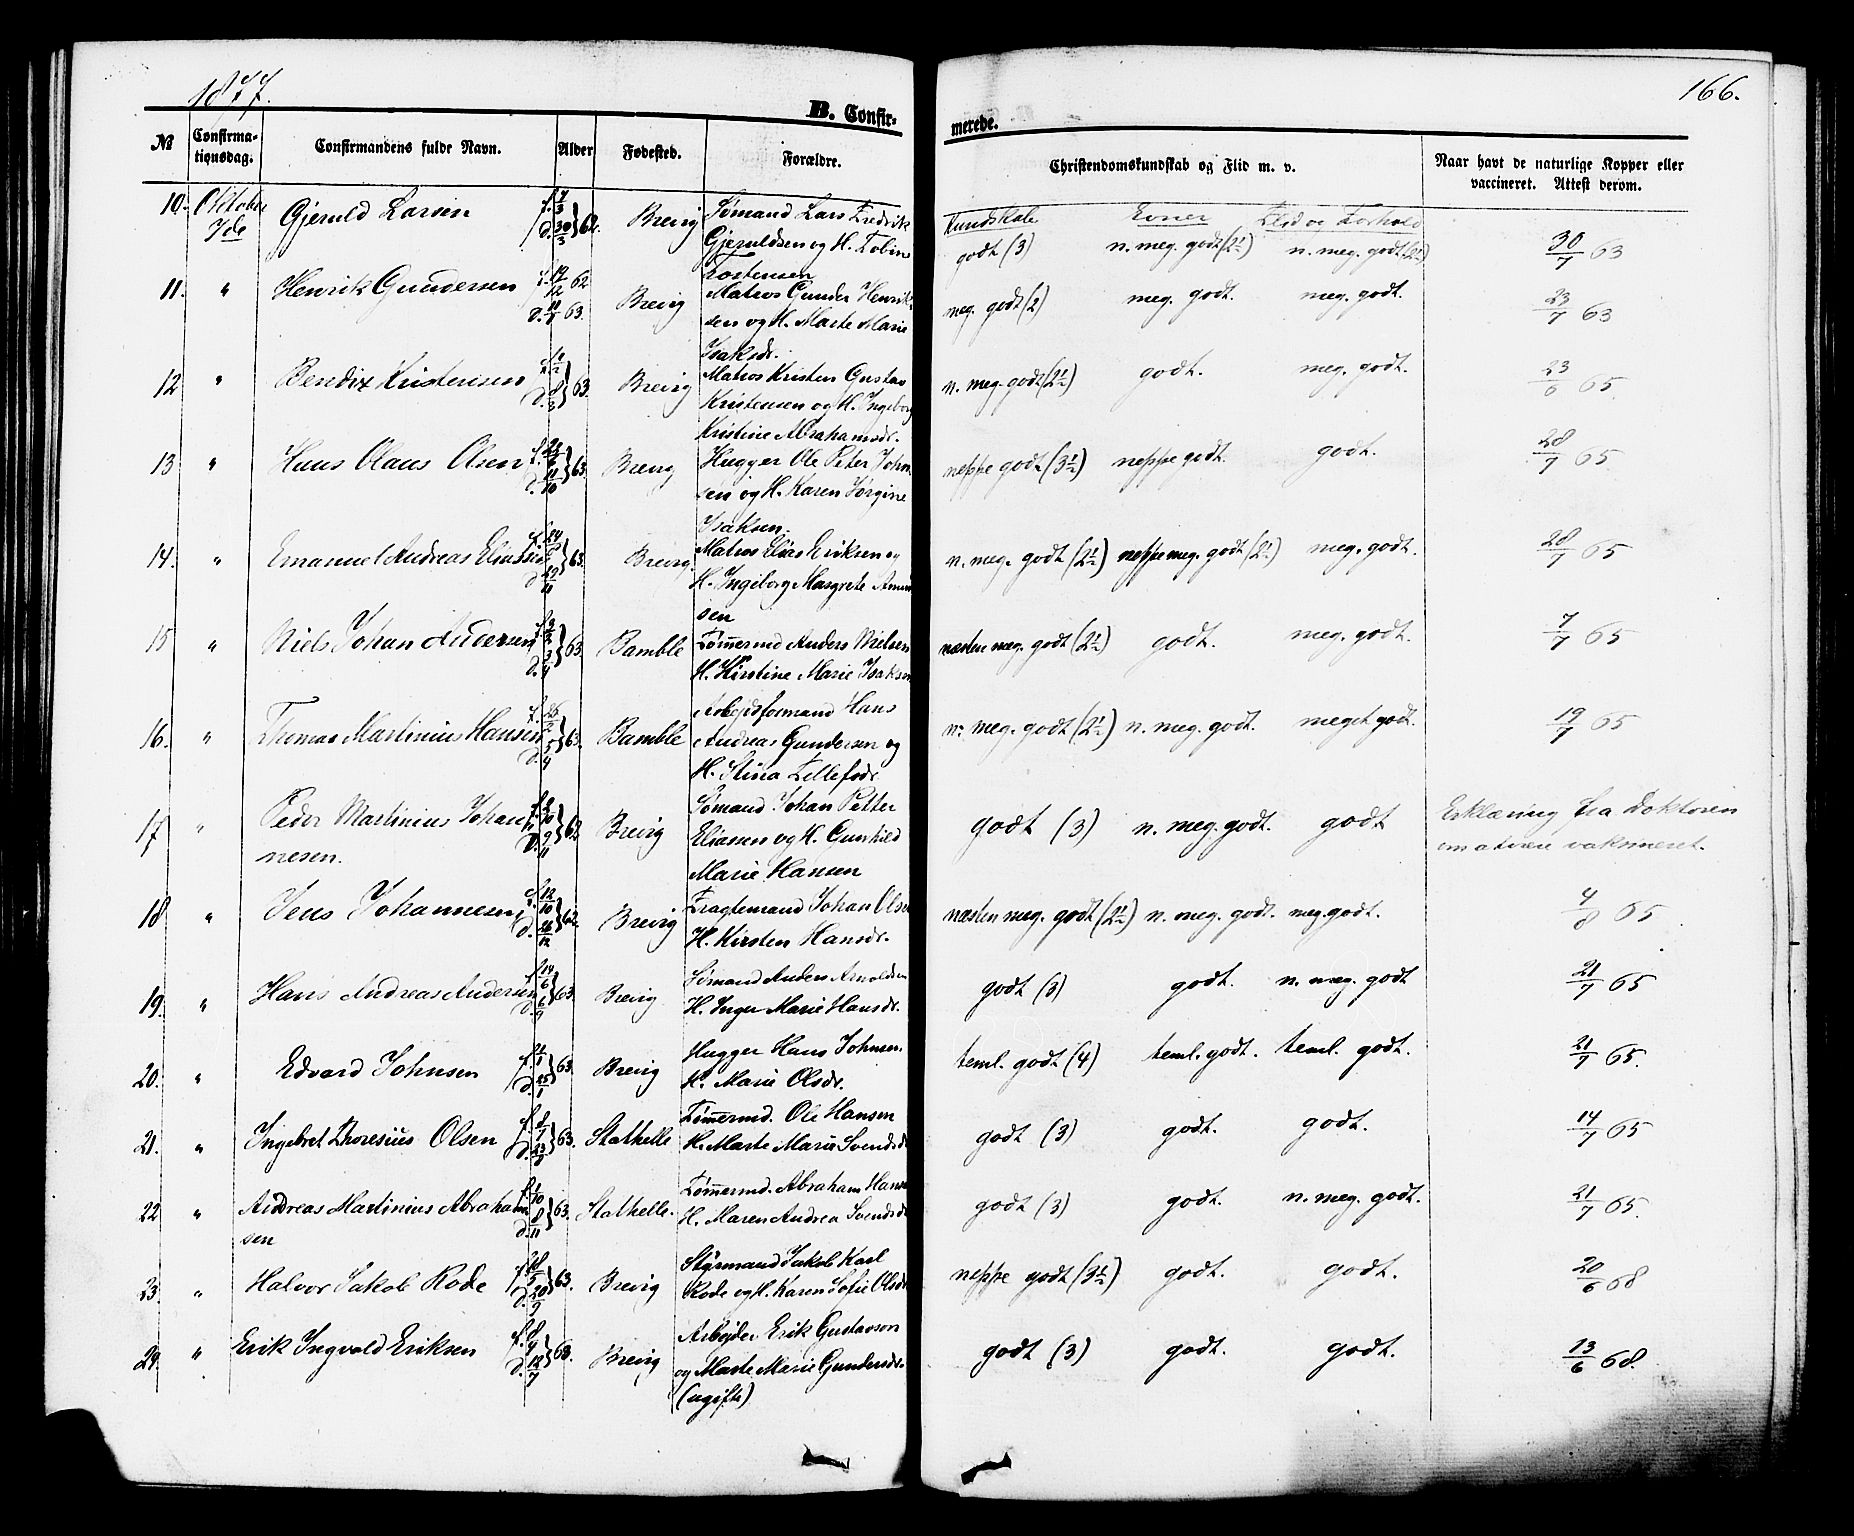 1877.
166.
B. Confir-
merede.
№
Confirma-
tionsdag.
Confirmandens fulde Navn.
Alder
Fødested.
Forældre.
Christendomskundskab og Flid m. v.
Naar havt de naturlige Kopper eller
vaccineret. Attest derom.
Kundskab Evner Flid og Forhold
10. Oktober 7de Gjeruld Larsen Brevig
Sømand Lars Fredrik
Gjeruldsen og H. Tobine
Torstensen
godt (3) n. meg. godt (2½) n. meg. godt (2½) 30/7 63
11. " Henrik Gundersen Brevig
Matros Gunder Henrik-
sen og H. Marte Marie
Isaksdr.
meg. godt (2) meg. godt. meg. godt. 23/7 63
12 " Bendix Kristensen Brevig
Matros Kristen Gustav
Kristensen og H. Ingeborg
Kristine Abrahamsdr.
n. meg. godt (2½) godt. meg. godt. 23/6 65
13 " Hans Olaus Olsen Brevig
Hugger Ole Peter John
sen og H. Karen Jørgine
Isaksen.
neppe godt (3½) neppe godt. godt. 28/7 65
14. " Emanuel Andreas Eliassen Brevig.
Matros Elias Eriksen og
H. Ingeborg Margrete Amun
sen
n. meg. godt (2½) neppe meg. godt (2½) meg. godt. 28/7 65
15 " Niels Johan Andersen f. 2/2 d. 3/4 63. Bamble
Tømermd Anders Nielsen
H. Kirstine Marie Isaksen
næsten meg. godt (2½) godt. meg. godt. 7/7 65
16. " Thomas Martinius Hansen 63. Bamble
Arbejdsformand Hans
Andreas Gundersen og
H. Stina Tellefsdr
n. meg. godt (2½) n. meg. godt. meget godt. 19/7 65
17 " Peder Martinius Johan
nesen. Brevig
Sømand Johan Petter
Eliassen og H. Gunhild
Marie Hansen
godt (3) n. meg. godt. godt Erklæring fra Doktoren
om at være vaksineret.
18 " Jens Johannesen f. 12/10 d. 26/12 62. Brevig
Fragtemand Johan Olsen
H. Kirsten Hansdr.
næsten meg. godt (2½) n. meg. godt. meg. godt. 4/8 65
19. " Hans Andreas Andersen f. 14/6 d. 6/9 63 Brevig
Sømand Anders Arnoldsen
H. Inger Marie Hansdr.
godt (3) godt. n. meg. godt 21/7 65
20. " Edvard Johnsen 63. Brevig
Hugger Hans Johnsen.
H. Marie Olsdr.
teml. godt (4) teml. godt. teml. godt. 21/7 65.
21. " Ingebret Thoresius Olsen 63. Stathelle
Tømermd. Ole Hansen
H. Marte Marie Svendsdr
godt (3) godt. godt. 14/7 65
22 " Andreas Martinius Abraham
sen f. 1/10 d. 8/11 63. Stathelle.
Tømermd. Abraham Hansen
H. Maren Andrea Svendsdr
godt (3) godt. n. meg. godt. 21/7 65.
23. " Halvor Jakob Rode f. 18/5 d. 20/9 63. Brevig
Styrmand Jakob Karl
Rode og H. Karen Sofie Olsdr
neppe godt (3½) godt. godt. 20/6 68
24. " Erik Ingvald Eriksen 63. Brevig
Arbejder Erik Gustavson
og Marte Marie Gundersdr.
(ugifte)
godt (3) godt. godt. 13/6 68.